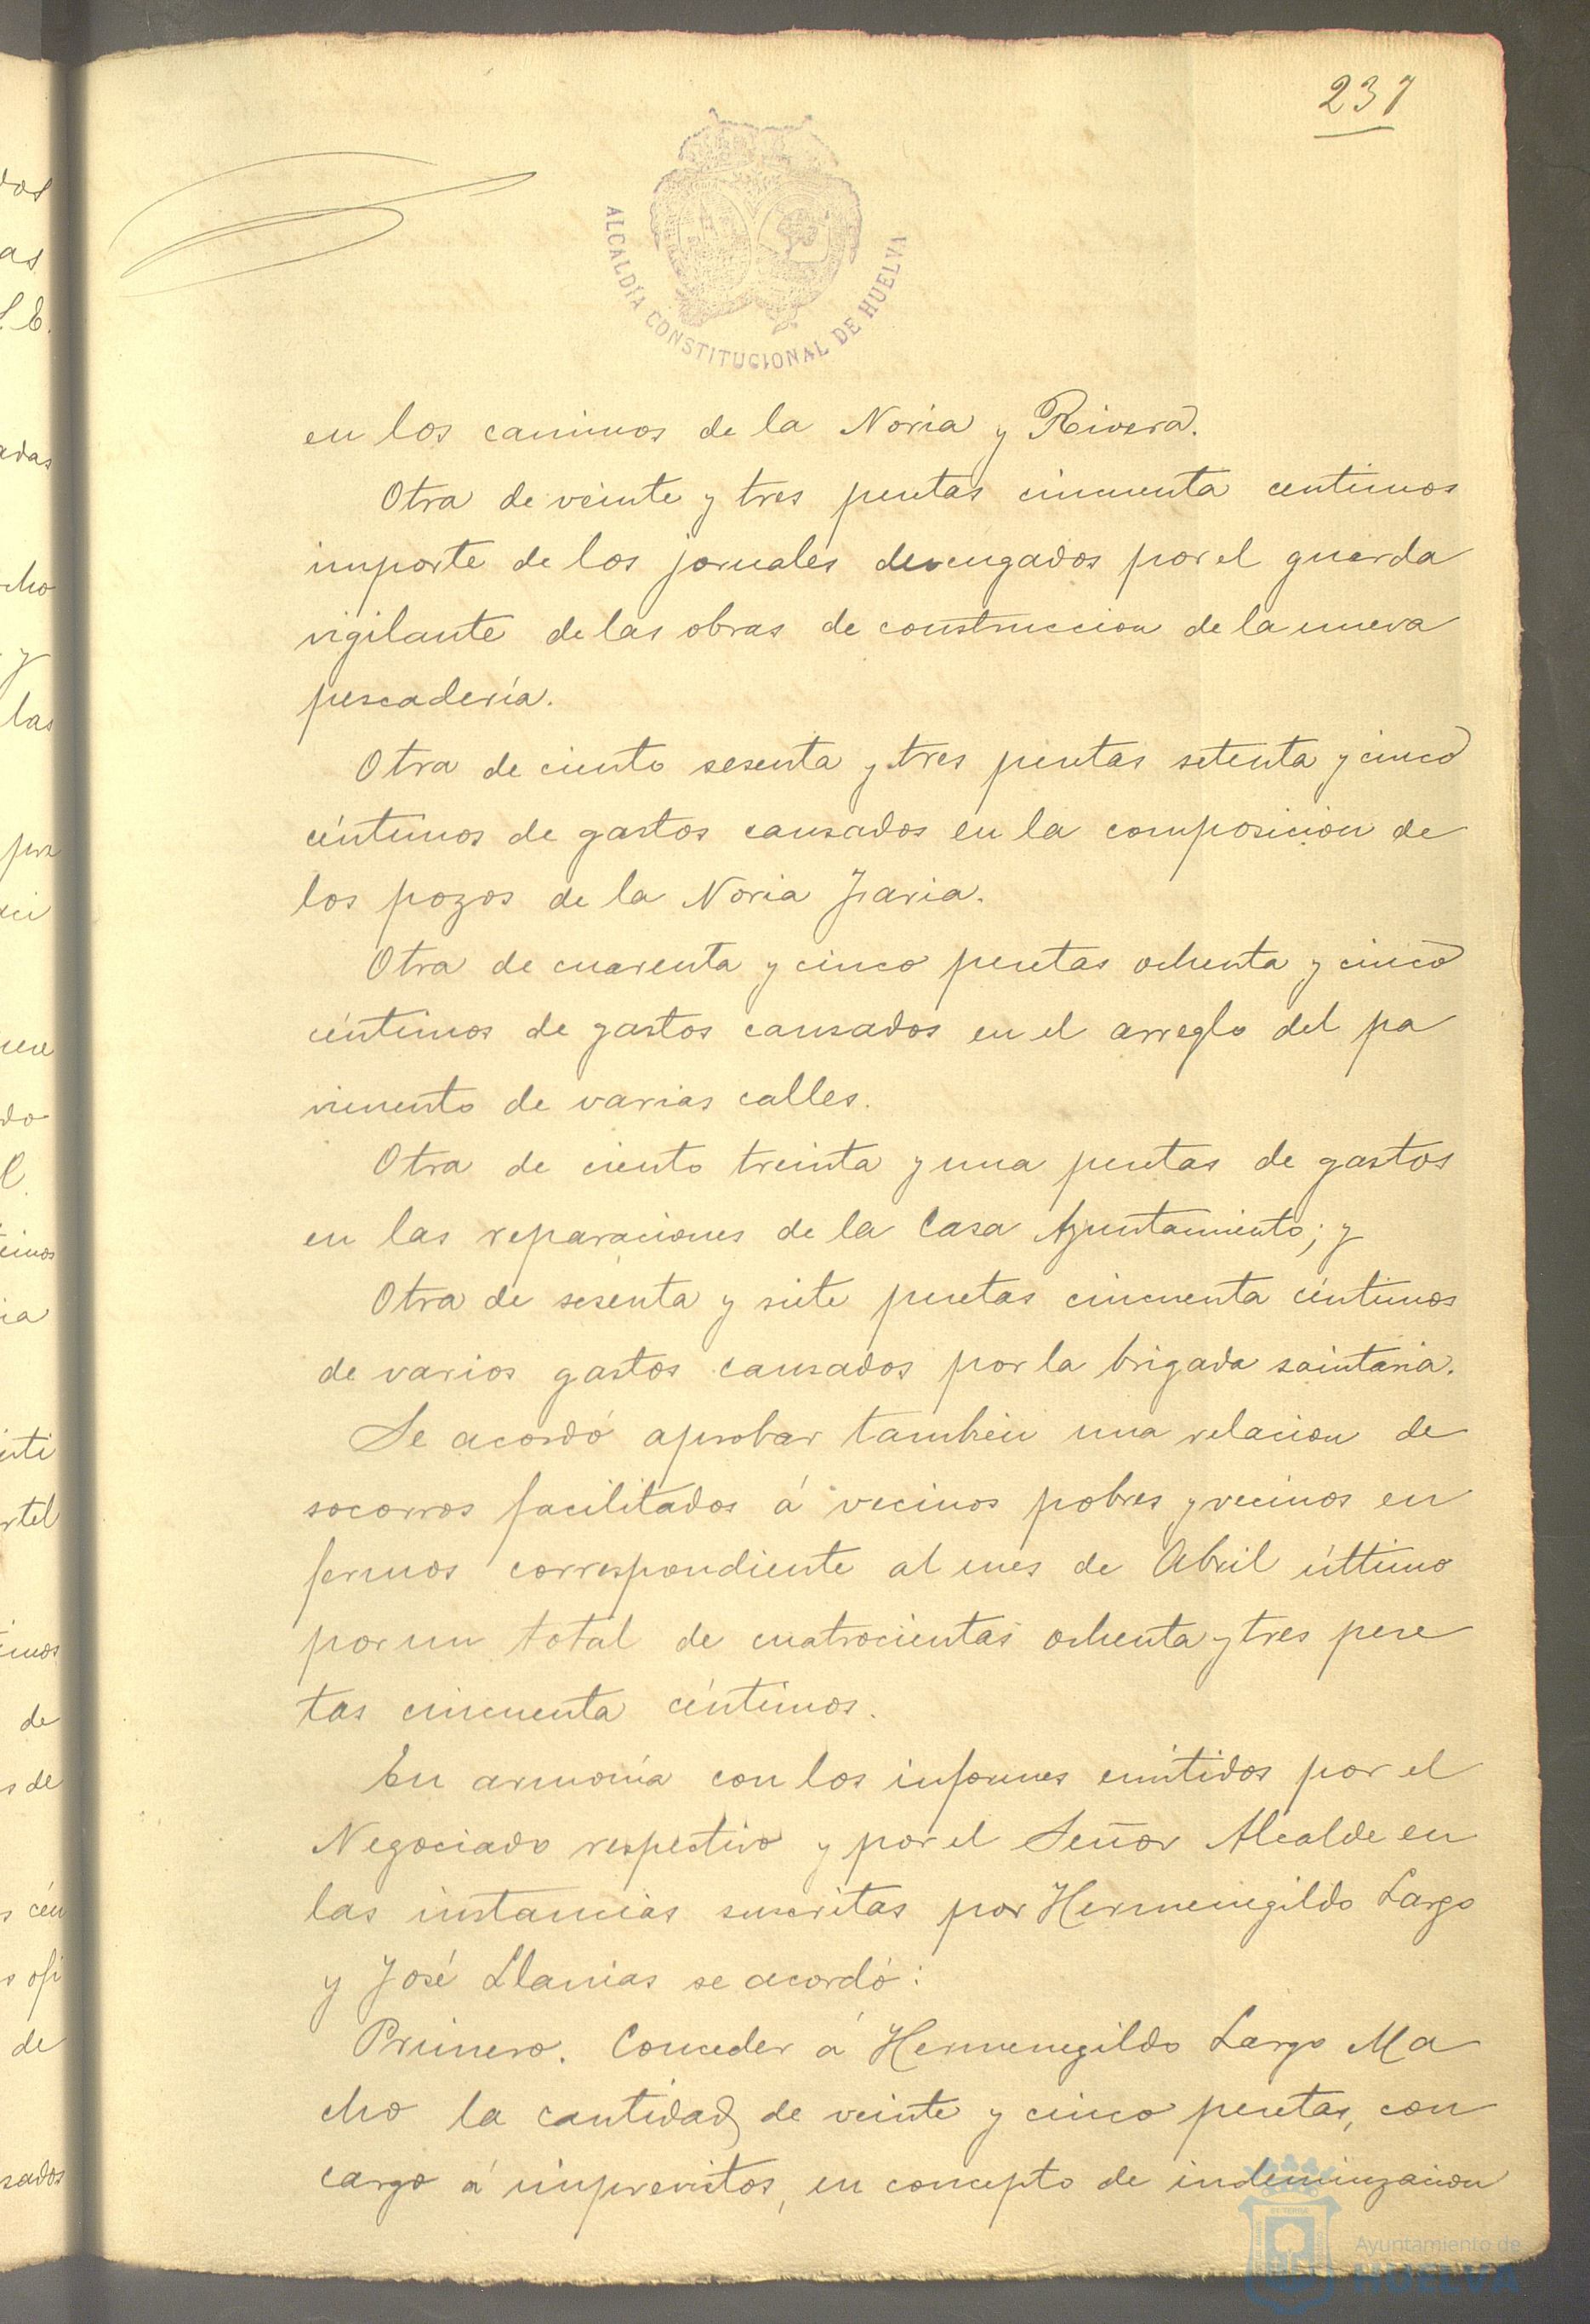 237
ALCALDÍA CONSTITUCIONAL DE HUELVA
en los caminos de la Noria y Rivera.
Otra de veinte y tres pesetas cincuenta centimos
importe de los jornales devengados por el guarda
vigilante de las obras de construccion de la nueva
pescadería.
Otra de ciento sesenta y tres pesetas setenta y cinco
céntimos de gastos causados en la composicion de
los pozos de la Noria
Otra de cuarenta y cinco pesetas ochenta y cinco
céntimos de gastos causados en el arreglo del pa
vimento de varias calles.
Otra de ciento treinta y una pesetas de gastos
en las reparaciones de la Casa Ayuntamiento; y
Otra de sesenta y siete pesetas cincuenta céntimos
de varios gastos causados por la brigada saintaria.
Se acordó aprobar tambien una relacion de
socorros facilitados á vecinos pobres y vecinos en
fermos correspondiente al mes de Abril último
por un total de cuatrocientas ochenta y tres pese
tas cincuenta céntimos.
En armonía con los informes emitidos por el
Negociado respectivo y por el Señor Alcalde en
las instancias suscritas por Hermenegildo Largo
y José Llanias se acordó:
Primero. Conceder á Hermenegildo Largo Ma
cho la cantidad de veinte y cinco pesetas, con
cargo á imprevistos, en concepto de indemnizacion
Ayuntamiento de
HUELVA